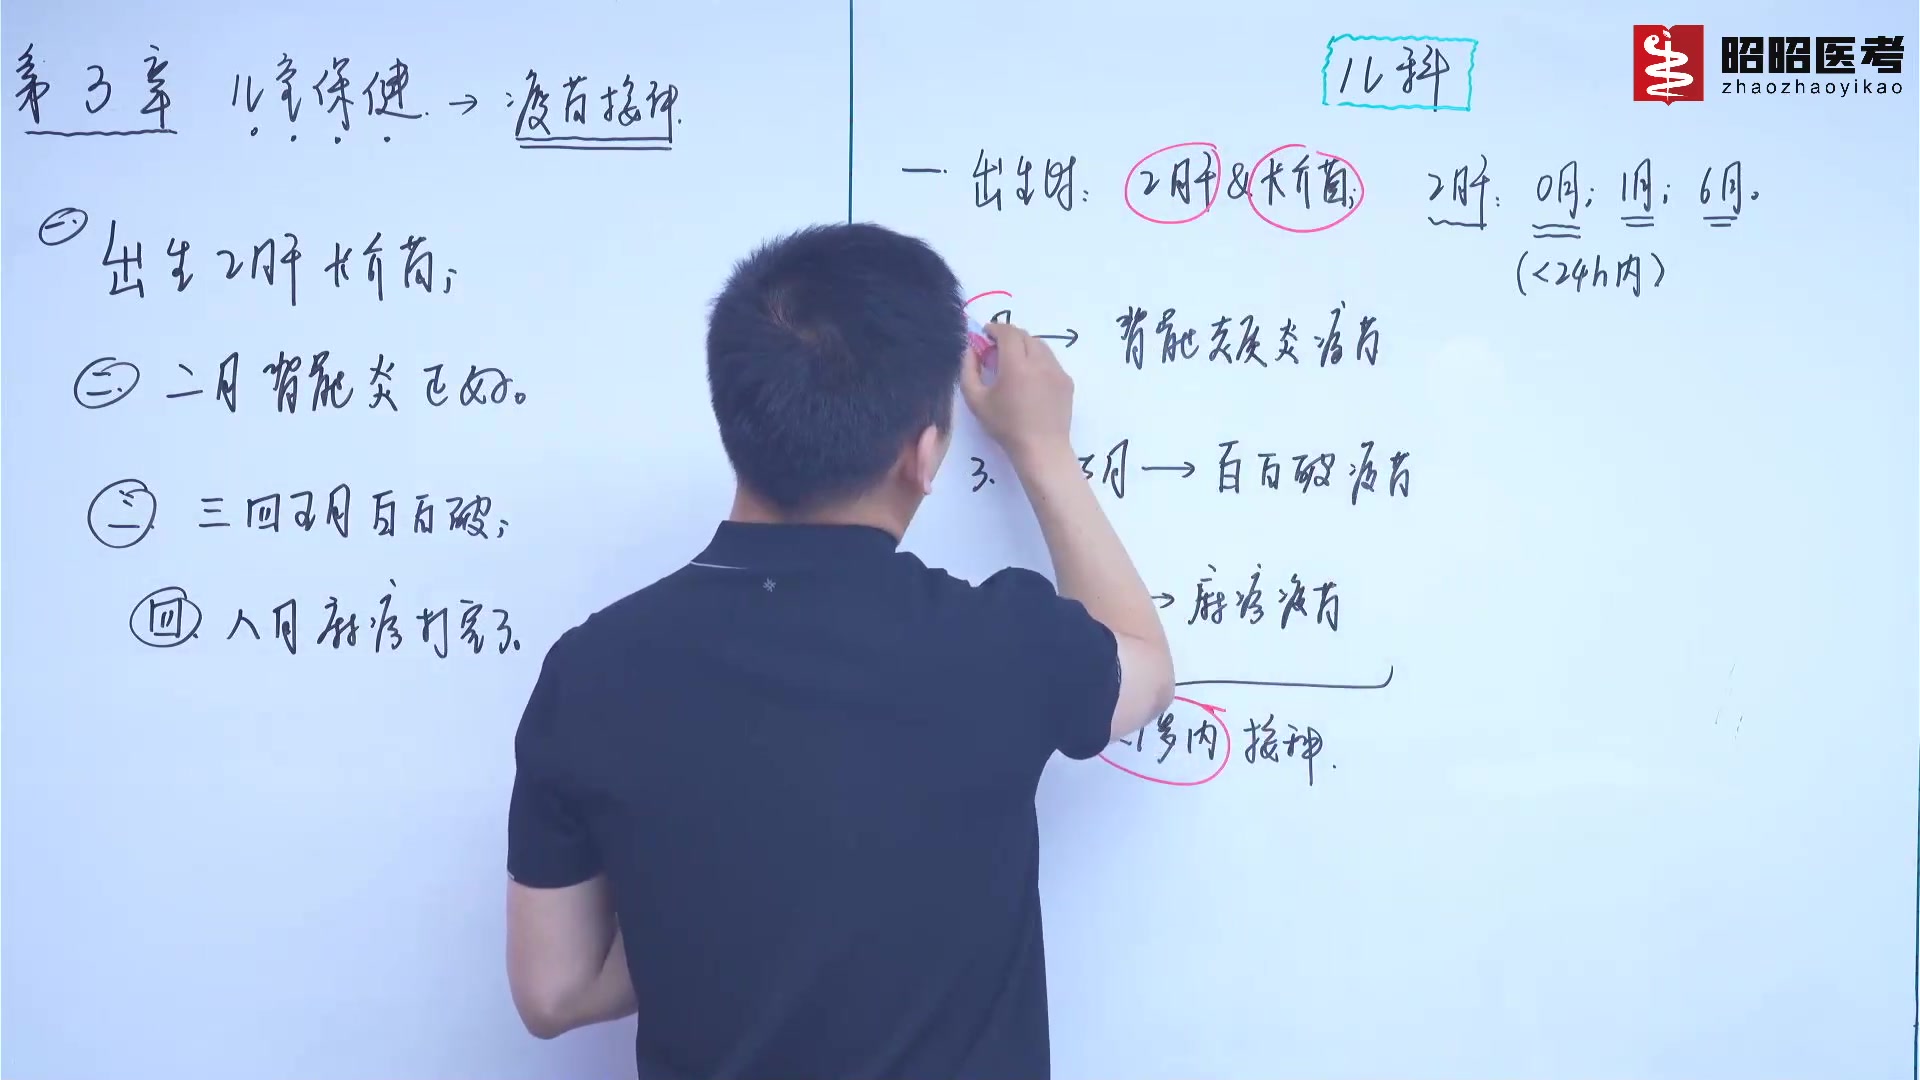 第3章 儿童保健 → 疫苗接种.
一. 出生2肝卡介苗;
二. 二月脊髓炎正好。
三. 三四五月百白破;
四. 八月麻疹打完了。
儿科
昭昭医考
zhaozhaoyikao
一. 出生时: 2肝&卡介苗; 2肝: 0月; 1月; 6月。
(<24h内)
月 → 脊髓灰质炎疫苗
3. 5月 → 百白破疫苗
→ 麻疹疫苗
1岁内 接种.